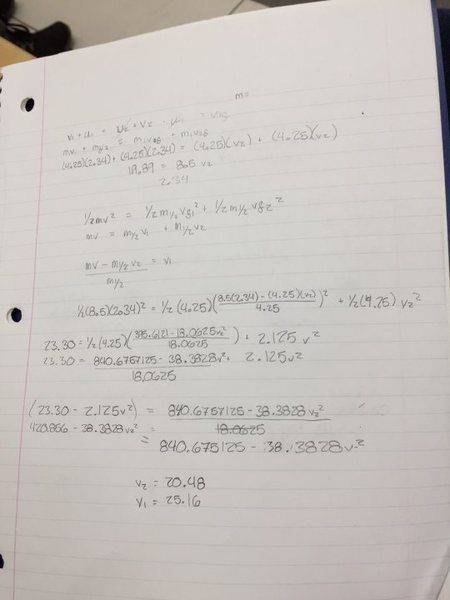 m=
mv₁ + m/₂ = m₁v₂g + m₁v₂g
(4.25)(2.34) + (4.25)(2.34) = (4.25)(v₂) + (4.25)(v₂)
19.89 = 8.5 v₂
2.34
½mv² = ½m/₂ vf₁² + ½m/₂ vf₂²
mv = m/₂ v₁ + m/₂ v₂
mv - m/₂ v₂ = v₁
m/₂
½(8.5)(2.34)² = ½(4.25)(8.5(2.34) - (4.25)(v₂) / 4.25)² + ½(4.25) v₂²
23.30 = ½(4.25)(395.6121 - 18.0625v² / 18.0625) + 2.125 v²
23.30 = 840.6757125 - 38.3828v² + 2.125v²
18.0625
(23.30 - 2.125v²) = 840.6757125 - 38.3828v₂²
420.856 - 38.3828v₂² = 18.0625
= 840.675125 - 38.3828v₂²
v₂ = 20.48
v₁ = 25.16